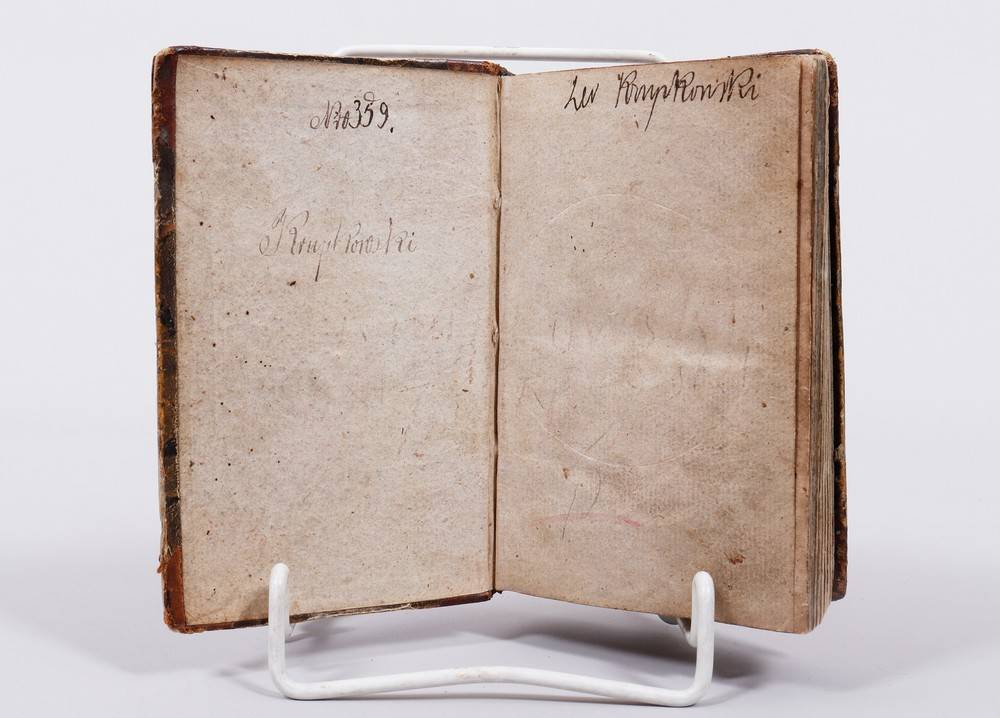 Nro 359.
Krupkowski
Leo Krupkowski